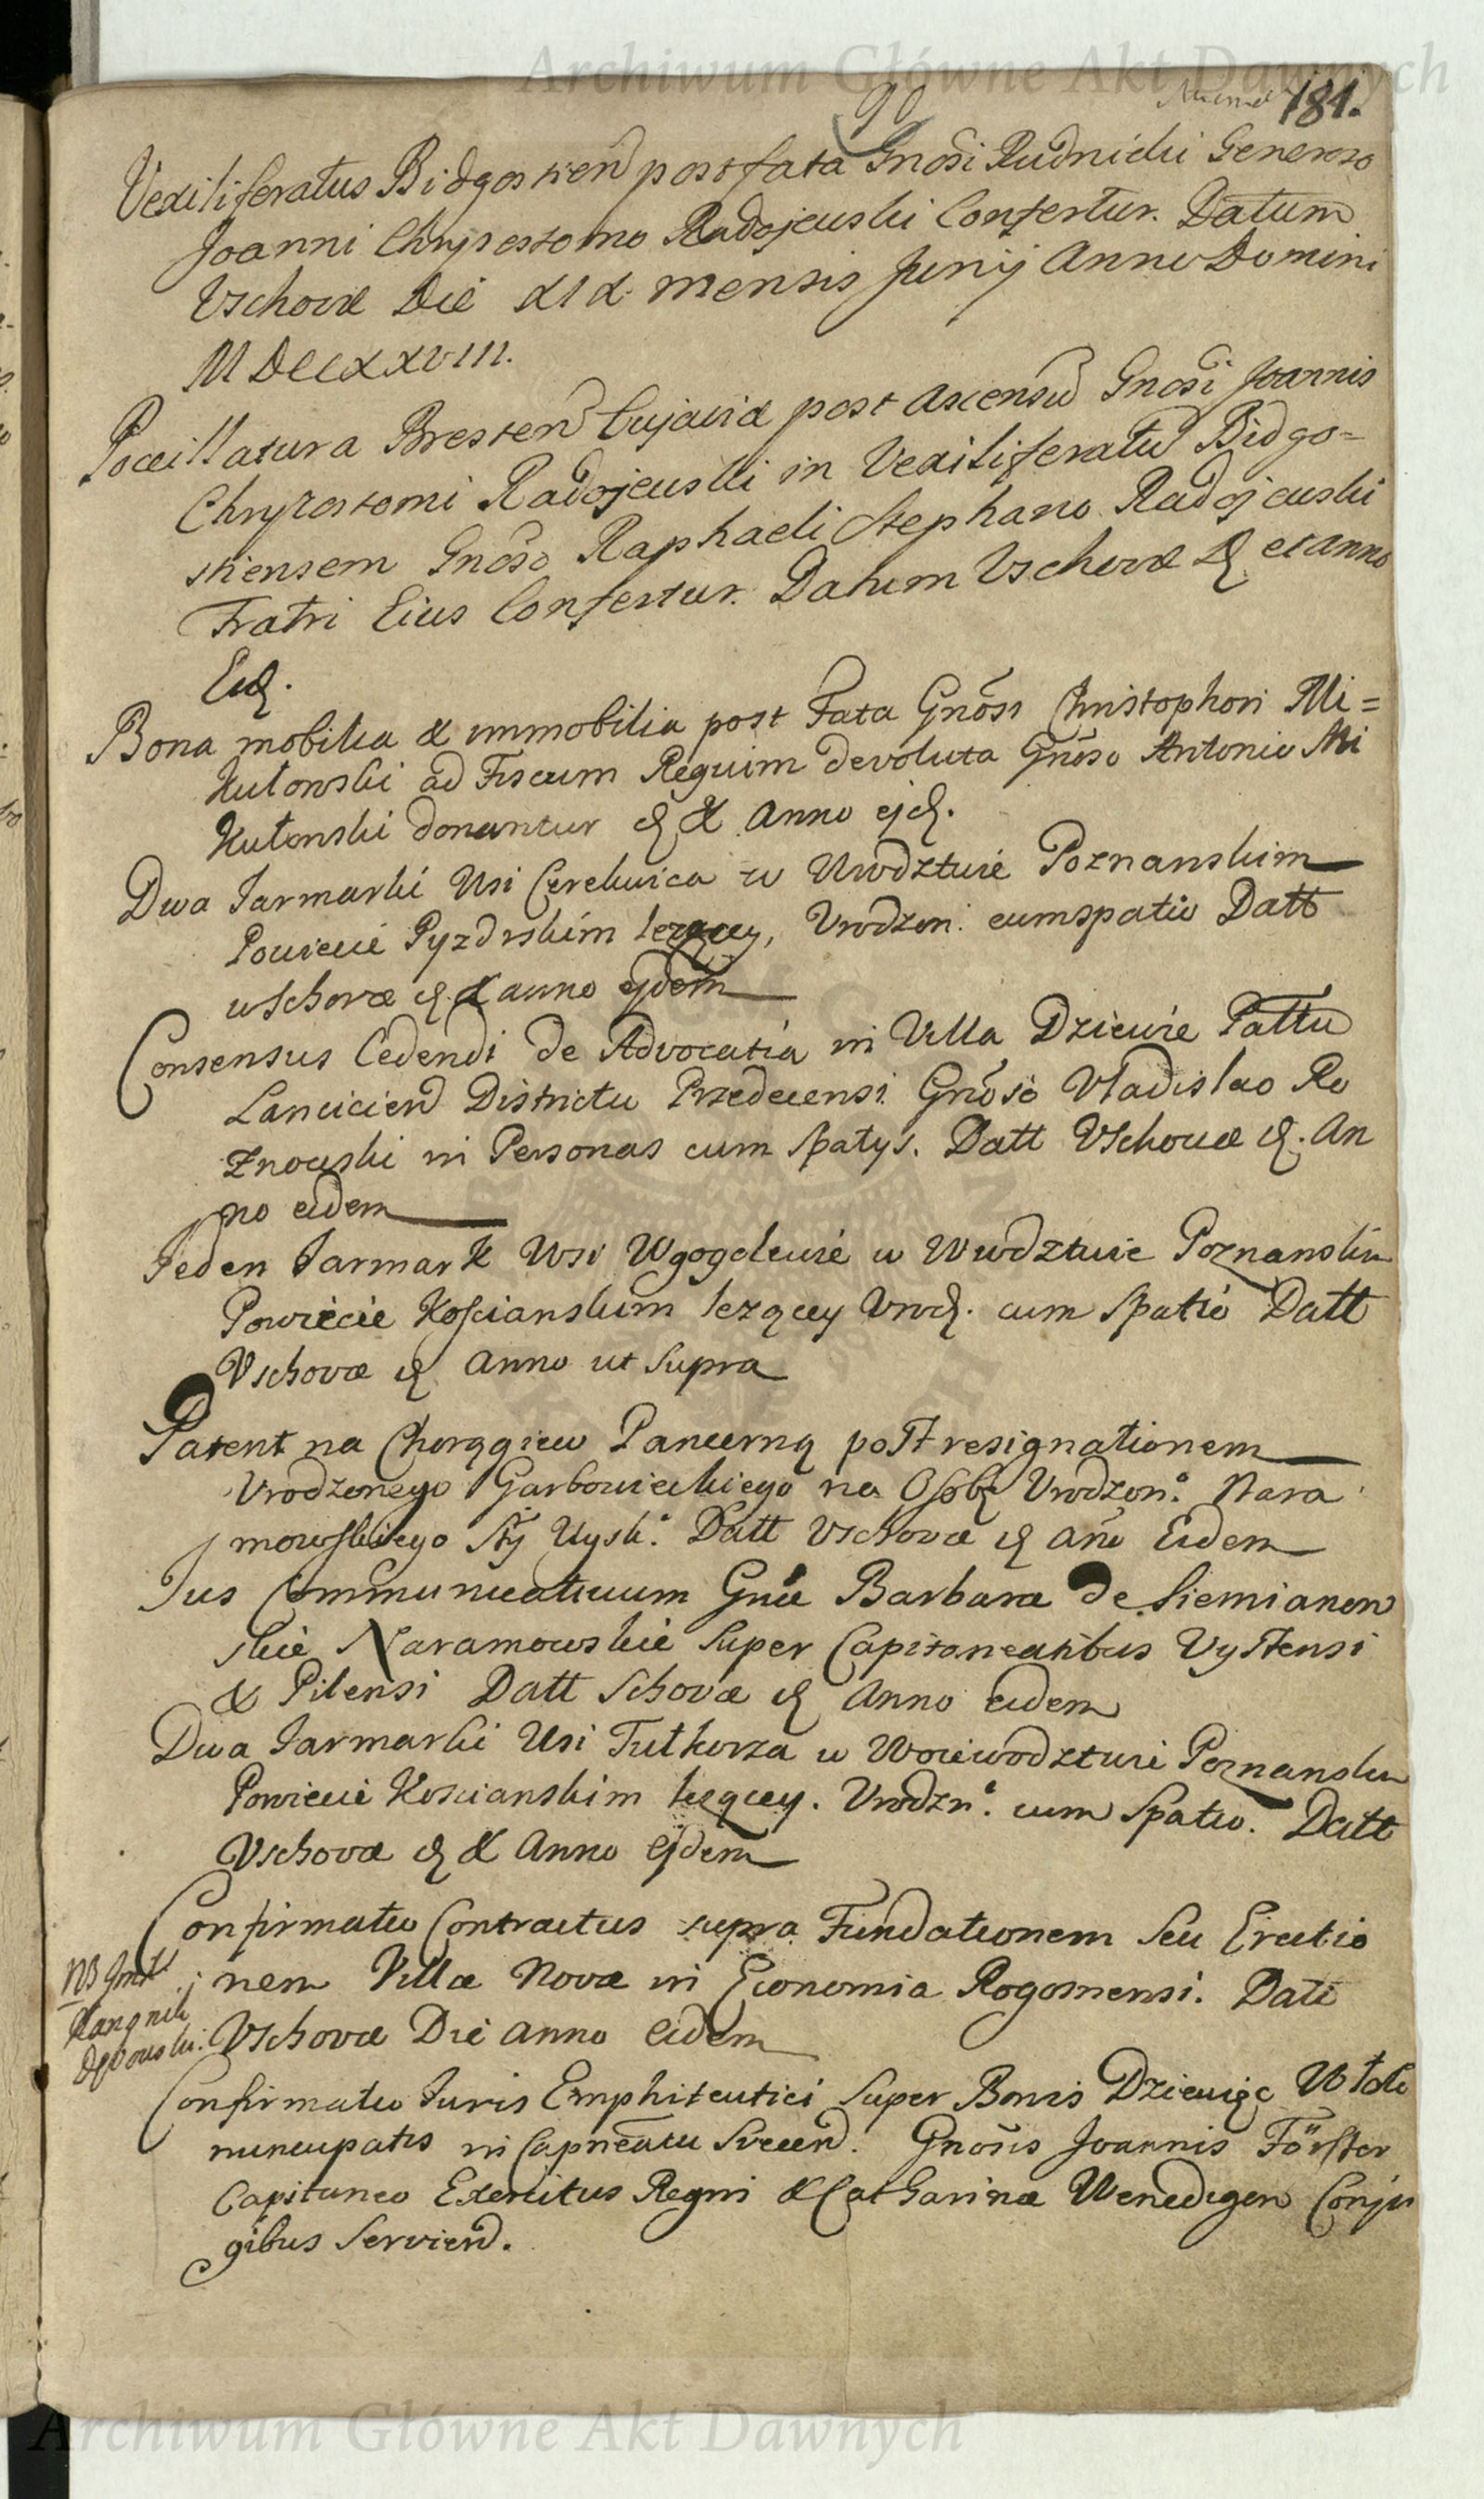 Archiwum Główne Akt Dawnych
90
181.
Vexiliferatus Bidgostien post fata Gnosi Rudnicki Generoso
Joanni Chrysostomo Radojewski Confertur. Datum
Vschovæ Die XIX mensis Junij Anno Domini
MDCCXXVIII.
Pocillatura Bresten Cujaviæ post ascensu Gnosi Joannis
Chryzostomi Radojewski in Vexiliferatu Bidgo=
stiensem Gnoso Raphaeli Stephano Radojewski
Fratri Eius Confertur. Datum Vschovæ D et anno
Eid.
Bona mobilia & immobilia post Fata Gnosi Christophori Mi=
kułowski ad Fiscum Regium devoluta Gnoso Antonio Mi
kułowski donantur d & Anno ejd.
Dwa Jarmarki Wsi Cerekwica w Wwdztwie Poznanskim
Powiecie Pyzdrskim lezącey, Vrodzon. cum spatio Datt
uschovæ d & anno ejdem
Consensus Cedendi de Advocatia in Villa Dziewie Pallu
Lancicien Districtu Przedecensi Gnoso Vladislao Ro
znowski in Personas cum spatys. Datt Vschovæ d. An
no eidem
Jeden Jarmark Wsi Wgogolewie w Wwdztwie Poznanskim
Powiecie Kościanskim lezącey Vrod. cum Spatio Datt
Vschovæ d Anno ut Supra
Patent na Chorągiew Pancerną post resignationem
Vrodzonego Garbowieckiego na Osobę Vrodzon. Nara
mowskiego Sty Wysk. Datt Vschovæ d ano Eidem
Jus Communicativum Gnæ Barbaræ de Siemianow
skie Naramowskie Super Capitaneatibus Vystensi
& Pilensi Datt Schovæ d Anno eidem
Dwa Jarmarki Wsi Tutkorza w Woiewodztwie Poznanskim
Powiecie Koscianskim lezącey. Vrodzn. cum Spatio. Datt
Vschovæ d & Anno Ejdem
Confirmatio Contractus supra Fundationem Seu Erectio
nem Villæ Novæ in Economia Rogosnensi. Datt
Vschovæ Die anno eidem
NB
Confirmatio Juris Emphiteutici Super Bonis Dziewięc Włok
nuncupatis in Capneatu Svecen. Gnosis Joannis Förster
Capitaneo Exercitus Regni & Catharinæ Wenedigen Conju
gibus Servien.
Archiwum Główne Akt Dawnych